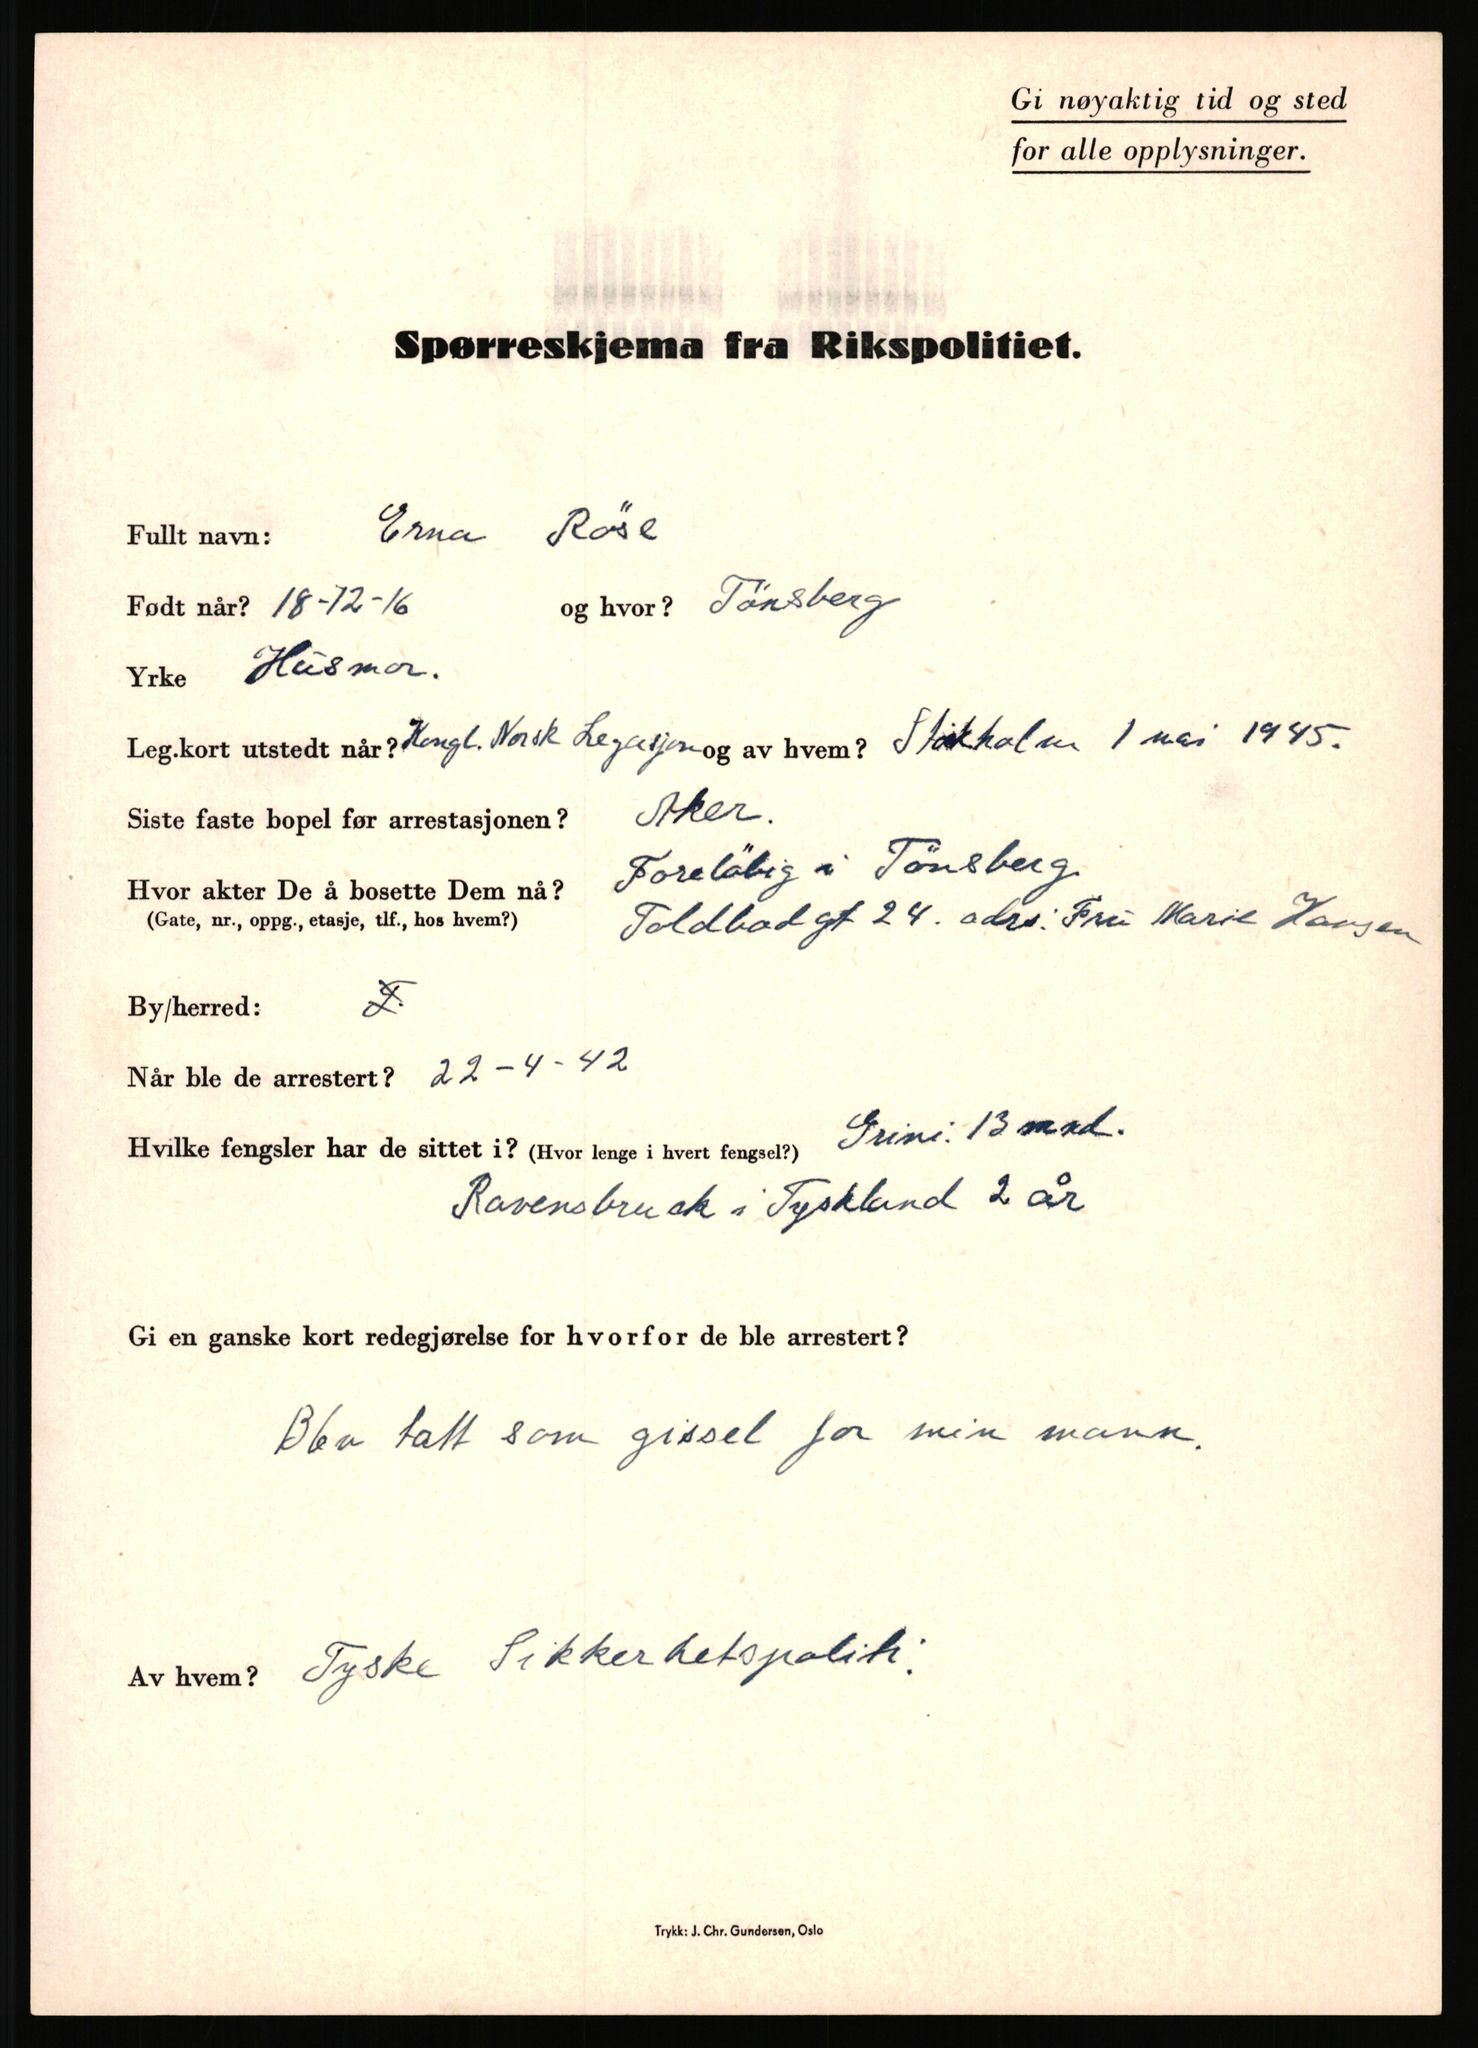 Gi nøyaktig tid og sted
for alle opplysninger.
Spørreskjema fra Rikspolitiet.
Fullt navn: Erna Röse
Født når? 18-12-16 og hvor? Tönsberg
Yrke Husmor.
Leg.kort utstedt når? Kongl. Norsk Legasjon og av hvem? Stokholm 1 mai 1945.
Siste faste bopel før arrestasjonen? Aker.
Hvor akter De å bosette Dem nå? Foreløbig i Tönsberg.
(Gate, nr., oppg., etasje, tlf., hos hvem?) Toldbodgt 24. adrs: Fru Marie Hansen
By/herred: T.
Når ble de arrestert? 22-4-42
Hvilke fengsler har de sittet i? (Hvor lenge i hvert fengsel?) Grini: 13 mnd.
Ravensbruck i Tyskland 2 år
Gi en ganske kort redegjørelse for hvorfor de ble arrestert?
Blev tatt som gissel for min mann.
Av hvem? Tyske Sikkerhetspoliti.
Trykk: J. Chr. Gundersen, Oslo